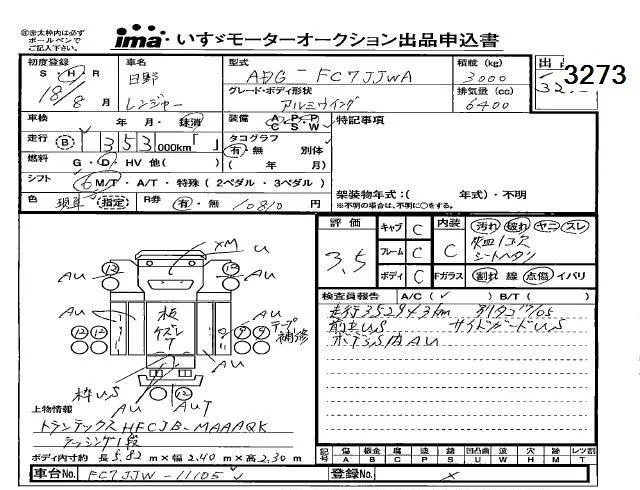 ㊟赤太枠内は必ず
ボールペンで
ご記入下さい。
ima・いすゞモーターオークション出品申込書
初度登録 S・H・R 18/8 月
車名 日野 レンジャー
型式 ADG-FC7JJWA
グレード・ボディ形状 アルミウイング
積載 (kg) 3000
排気量 (cc) 6400
3273
車検 年 月・抹消
装備 A/C P/S P/W
特記事項
走行 B 353,000km「 」
タコグラフ 有・無 別体
燃料 G・D・HV 他( ) ( 年 月)
シフト 6 M/T・A/T・特殊(2ペダル・3ペダル)
架装物年式:( 年式)・不明
※不明の場合は、不明に○をする。
色 現車 (指定) R券 有・無 10810 円
評価 3.5
キャブ C
フレーム C
ボディ C
内装 C
汚れ 破れ ヤニ スレ
Fガラス 割れ 線 点傷 イバリ
XM U
AU 12 12 AU
12 12
板
9 9 テープ補修
AU AU
枠US
AU AUT 12
検査員報告 A/C(✓) B/T( )
走行352943km デジタコ17/05
前立US サイドガードUS
ボデ3S内AU
上物情報
トランテックスHFCJB-MAAAQK
ラッシング1段
ボディ内寸約 長5.82m×幅2.40m×高2.30m
記号 傷 A 板金 B 腐 C 塗 P 錆 S 凹凸曲 U 波 W 穴 H 跡 M レツ割 T
車台No. FC7JJW-11105
登録No. ×